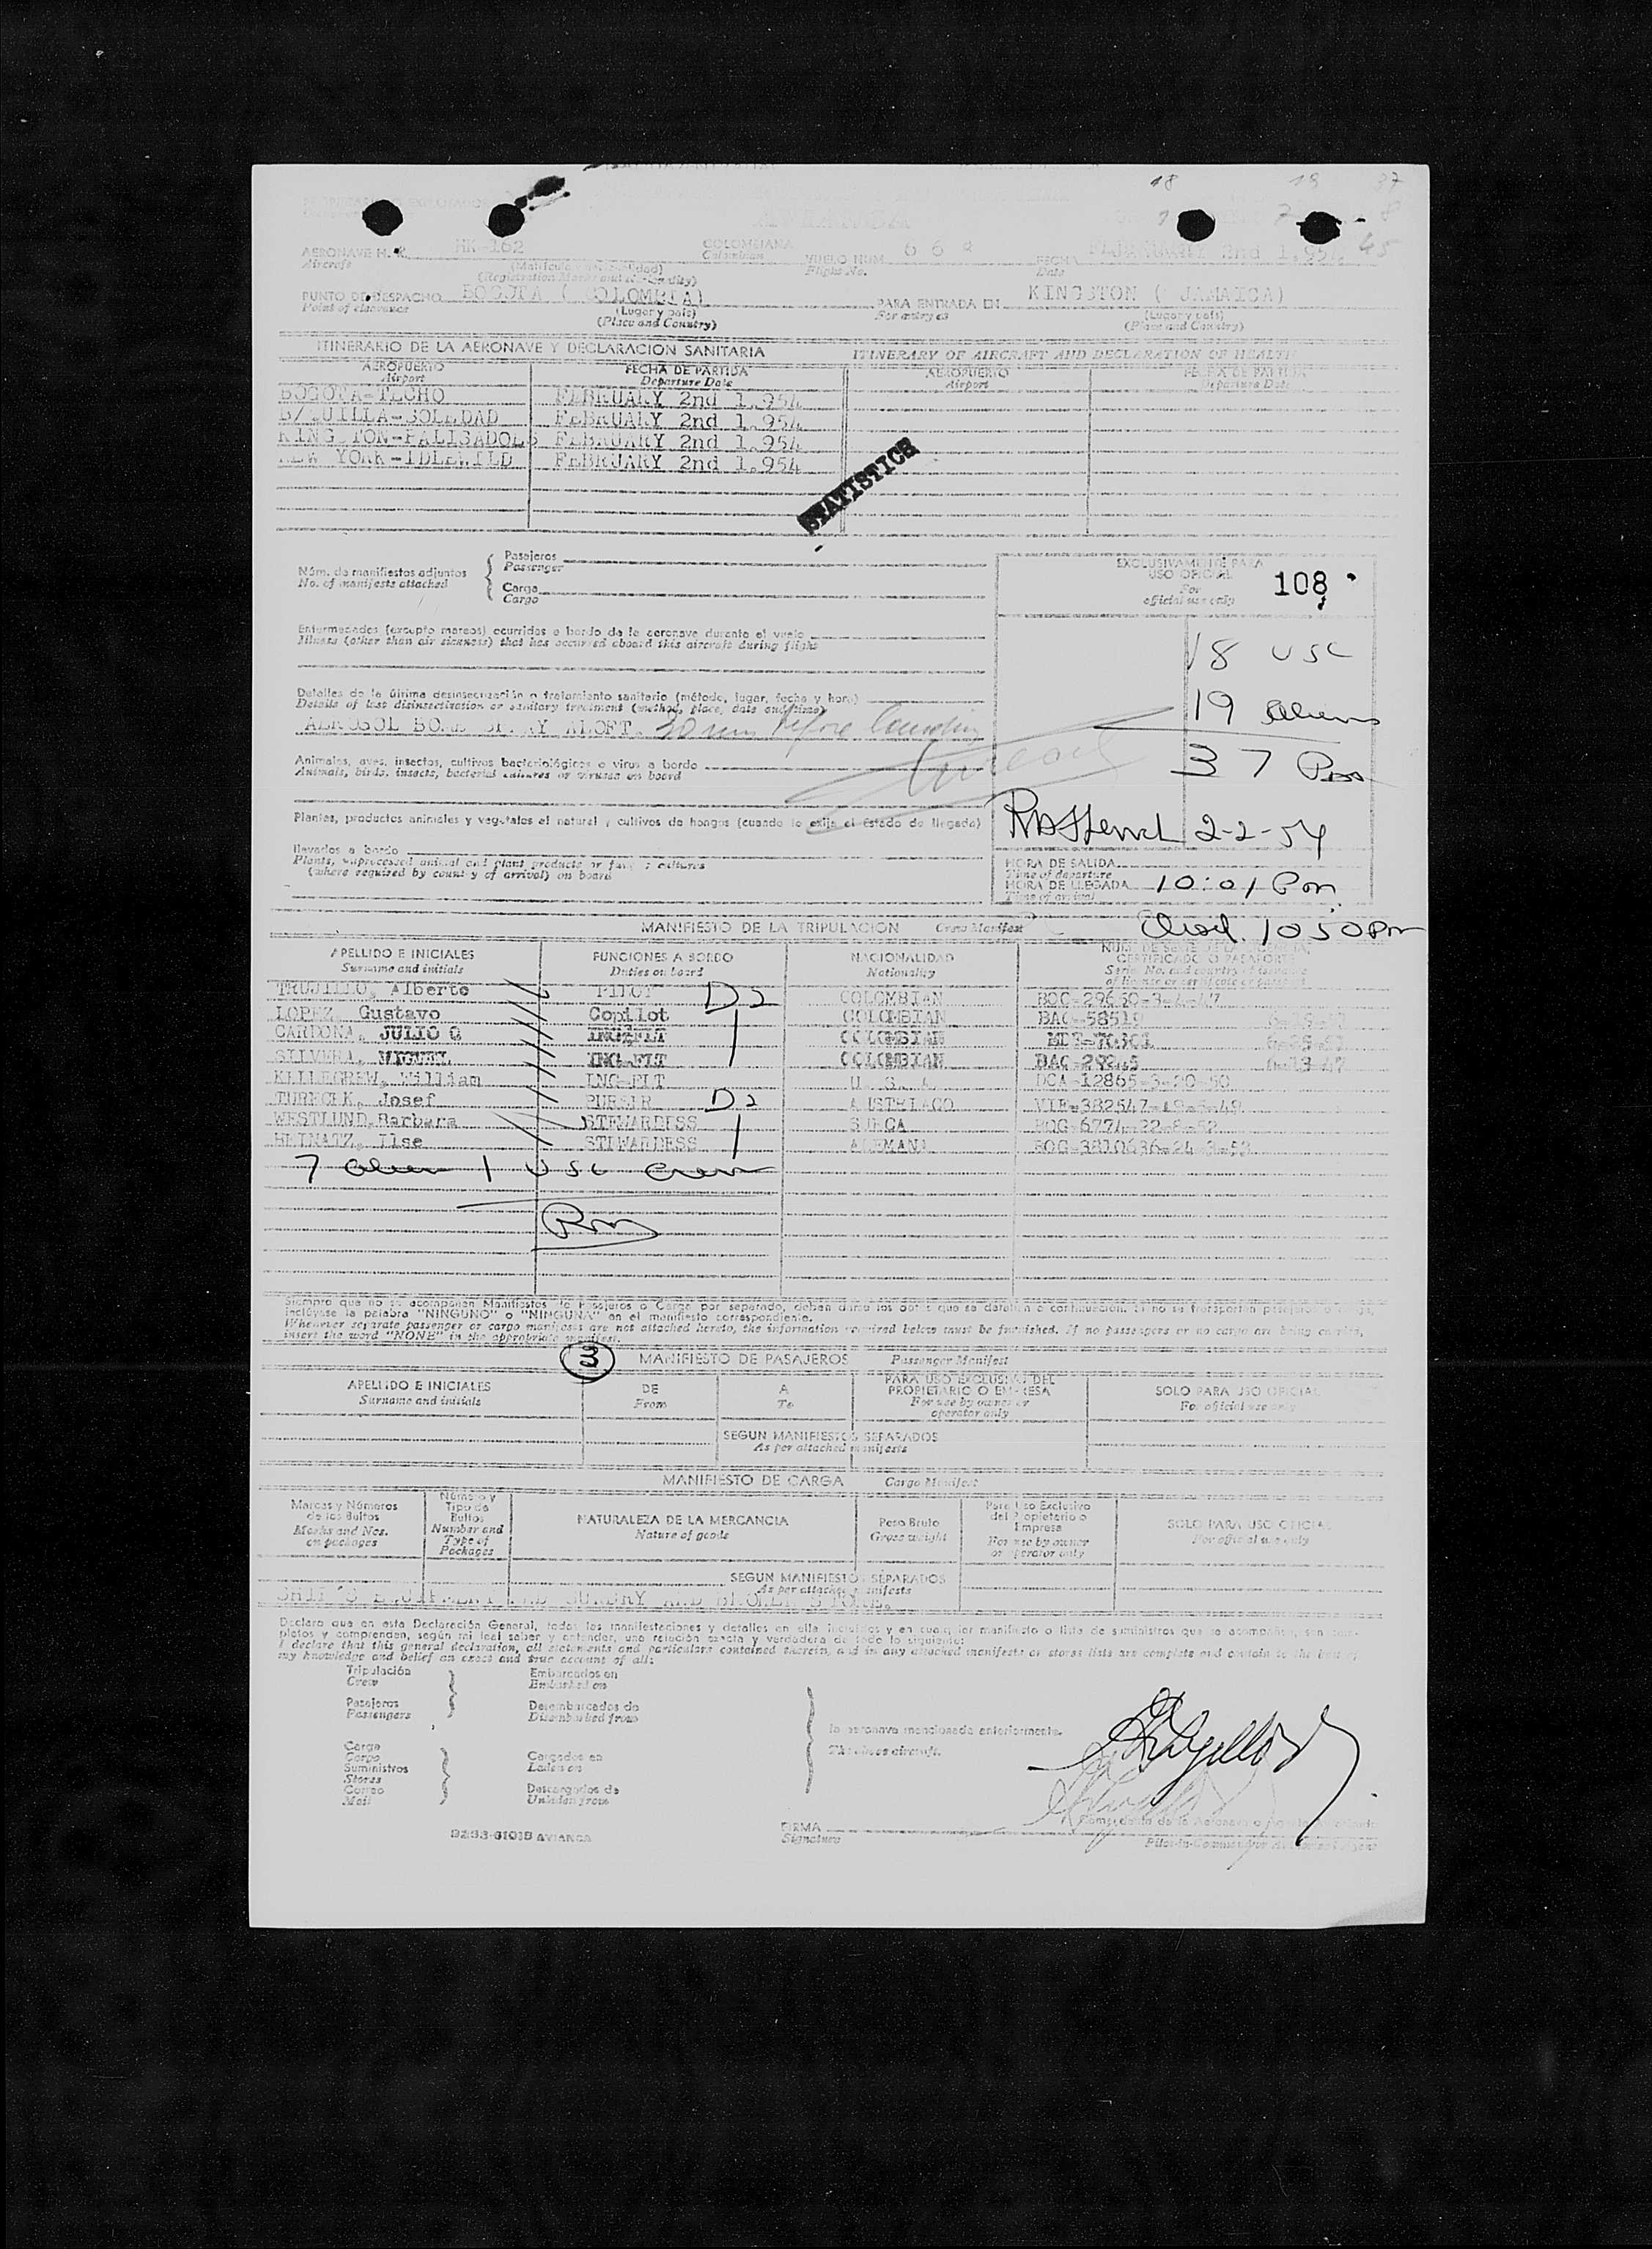 18 19 37
7 8
45
AERONAVE M. HK-162 COLOMBIANA VUELO NUM. 668 FECHA FEBRUARY 2nd 1.954
Aircraft (Matrícula y nacionalidad) Colombian Flight No. Date
(Registration Marks and Nationality)
PUNTO DE DESPACHO BOGOTA ( COLOMBIA) PARA ENTRADA EN KINGSTON ( JAMAICA)
Point of clearance (Lugar y país) For entry en (Lugar y país)
(Place and Country) (Place and Country)
ITINERARIO DE LA AERONAVE Y DECLARACION SANITARIA ITINERARY OF AIRCRAFT AND DECLARATION OF HEALTH
AEROPUERTO FECHA DE PARTIDA AEROPUERTO FECHA DE PARTIDA
Airport Departure Date Airport Departure Date
BOGOTA-TECHO FEBRUARY 2nd 1.954
B/QUILLA-SOLEDAD FEBRUARY 2nd 1.954
KINGSTON-PALISADOES FEBRUARY 2nd 1.954
NEW YORK-IDLEWILD FEBRUARY 2nd 1.954
STATISTICS
Núm. de manifiestos adjuntos Pasajeros
No. of manifests attached Passenger
Carga
Cargo
EXCLUSIVAMENTE PARA
USO OFICIAL 108
For
official use only
Enfermedades (excepto mareos) ocurridas a bordo de la aeronave durante el vuelo
Illness (other than air sickness) that has occurred aboard this aircraft during flight
18 USC
Detalles de la última desinsectización o tratamiento sanitario (método, lugar, fecha y hora)
Details of last disinsectization or sanitary treatment (method, place, date and time)
19 aliens
AEROSOL BOMB SPRAY ALOFT. 30 min before landing
37 Pass
Animales, aves, insectos, cultivos bacteriológicos o virus a bordo
Animals, birds, insects, bacterial cultures or viruses on board
Plantas, productos animales y vegetales al natural y cultivos de hongos (cuando lo exija el Estado de llegada)
2-2-54
llevados a bordo
Plants, unprocessed animal and plant products or fungi cultures
(where required by country of arrival) on board
HORA DE SALIDA
Time of departure
HORA DE LLEGADA 10:01 Pm
Time of arrival
MANIFIESTO DE LA TRIPULACION Crew Manifest 1050 Pm
APELLIDO E INICIALES FUNCIONES A BORDO NACIONALIDAD NUM. DE SERIE DE LA LICENCIA, CERTIFICADO O PASAPORTE
Surname and initials Duties on board Nationality Serie No. and country of issuance
of license or certificate or passport
TRUJILLO, Alberto PILOT D2 COLOMBIAN BOG-29650-3-4-47
LOPEZ, Gustavo Copilot COLOMBIAN BAC-58519
CARDONA, JULIO C ING-FLT COLOMBIAN
SILVERA, MIGUEL ING-FLT COLOMBIAN
KELLEGREW, William ING-FLT U. S. A. DCA-12865-3-20-50
TURECEK, Josef PURSER D2 AUSTRIACO VIE-382547-19-5-49
WESTLUND, Barbara STEWARDESS SUECA BOG-6774-22-8-52
HEINATZ, Ilse STEWARDESS ALEMANA BOG-3810636-24-3-53
7 alien 1 USC crew
Siempre que no se acompañen Manifiestos de Pasajeros o Carga por separado, deben darse los datos que se detallan a continuación. Si no se transportan pasajeros o carga,
inclúyase la palabra "NINGUNO" o "NINGUNA" en el manifiesto correspondiente.
Whenever separate passenger or cargo manifests are not attached hereto, the information required below must be furnished. If no passengers or no cargo are being carried,
insert the word "NONE" in the appropriate manifest.
3 MANIFIESTO DE PASAJEROS Passenger Manifest
APELLIDO E INICIALES DE A PARA USO EXCLUSIVO DEL PROPIETARIO O EMPRESA SOLO PARA USO OFICIAL
Surname and initials From To For use by owner or operator only For official use only
SEGUN MANIFIESTOS SEPARADOS
As per attached manifests
MANIFIESTO DE CARGA Cargo Manifest
Marcas y Números de los Bultos Número y Tipo de Bultos NATURALEZA DE LA MERCANCIA Peso Bruto Para Uso Exclusivo del Propietario o Empresa SOLO PARA USO OFICIAL
Marks and Nos. on packages Number and Type of Packages Nature of goods Gross weight For use by owner or operator only For official use only
SEGUN MANIFIESTOS SEPARADOS
As per attached manifests
SHIP'S EQUIPMENT AND SUNDRY AND BROKEN STORE.
Declaro que en esta Declaración General, todas las manifestaciones y detalles en ella incluidos y en cualquier manifiesto o lista de suministros que se acompañen, son com-
pletos y comprenden, según mi leal saber y entender, una relación exacta y verdadera de todo lo siguiente:
I declare that this general declaration, all statements and particulars contained therein, and in any attached manifests or stores lists are complete and contain to the best of
my knowledge and belief an exact and true account of all:
Tripulación Embarcados en
Crew Embarked on
Pasajeros Desembarcados de
Passengers Disembarked from
la aeronave mencionada anteriormente.
The above aircraft.
Carga
Cargo Cargados en
Suministros Laden on
Stores
Correo Descargados de
Mail Unladen from
D233-6101B AVIANCA
FIRMA
Signature
Comandante de la Aeronave o Agente Autorizado
Pilot-in-Command or Authorized Agent